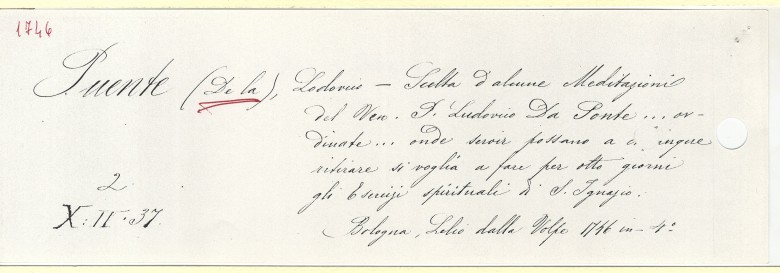 1746
Puente (De la), Lodovico – Scelta d'alcune Meditazioni
del Ven. P. Ludovico Da Ponte... or-
dinate... onde servir possano a
ritirare si voglia a fare per otto giorni
gli Esercizi spirituali di S. Ignazio.
2
X: II. 37.
Bologna, Lelio dalla Volpe 1746 in-4°